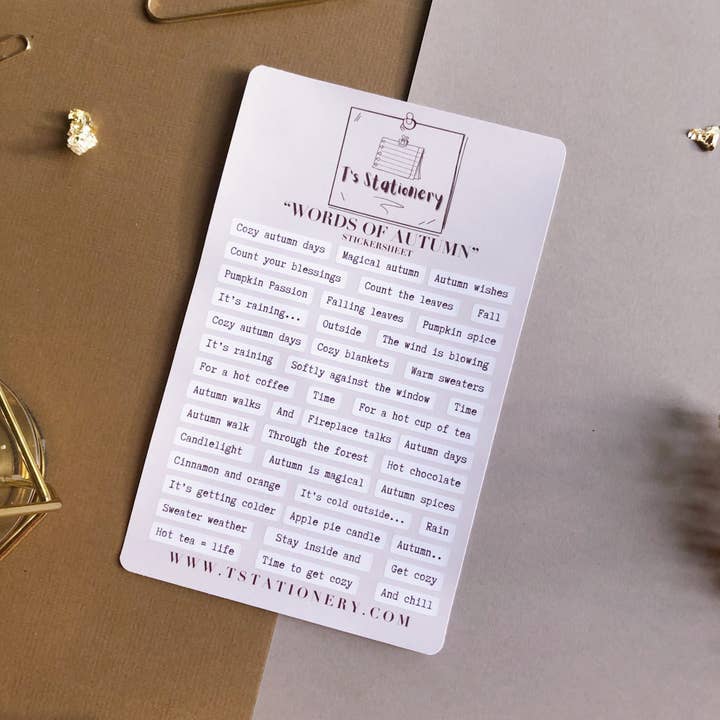 T's Stationery
"WORDS OF AUTUMN"
STICKERSHEET
Cozy autumn days Magical autumn Autumn wishes
Count your blessings Count the leaves Fall
Pumpkin Passion Falling leaves Pumpkin spice
It's raining... Outside The wind is blowing
Cozy autumn days Cozy blankets Warm sweaters
It's raining Softly against the window Time
For a hot coffee Time For a hot cup of tea
Autumn walks And Fireplace talks Autumn days
Autumn walk Through the forest Hot chocolate
Candlelight Autumn is magical Autumn spices
Cinnamon and orange It's cold outside... Rain
It's getting colder Apple pie candle Autumn..
Sweater weather Stay inside and Get cozy
Hot tea = life Time to get cozy And chill
WWW.TSTATIONERY.COM